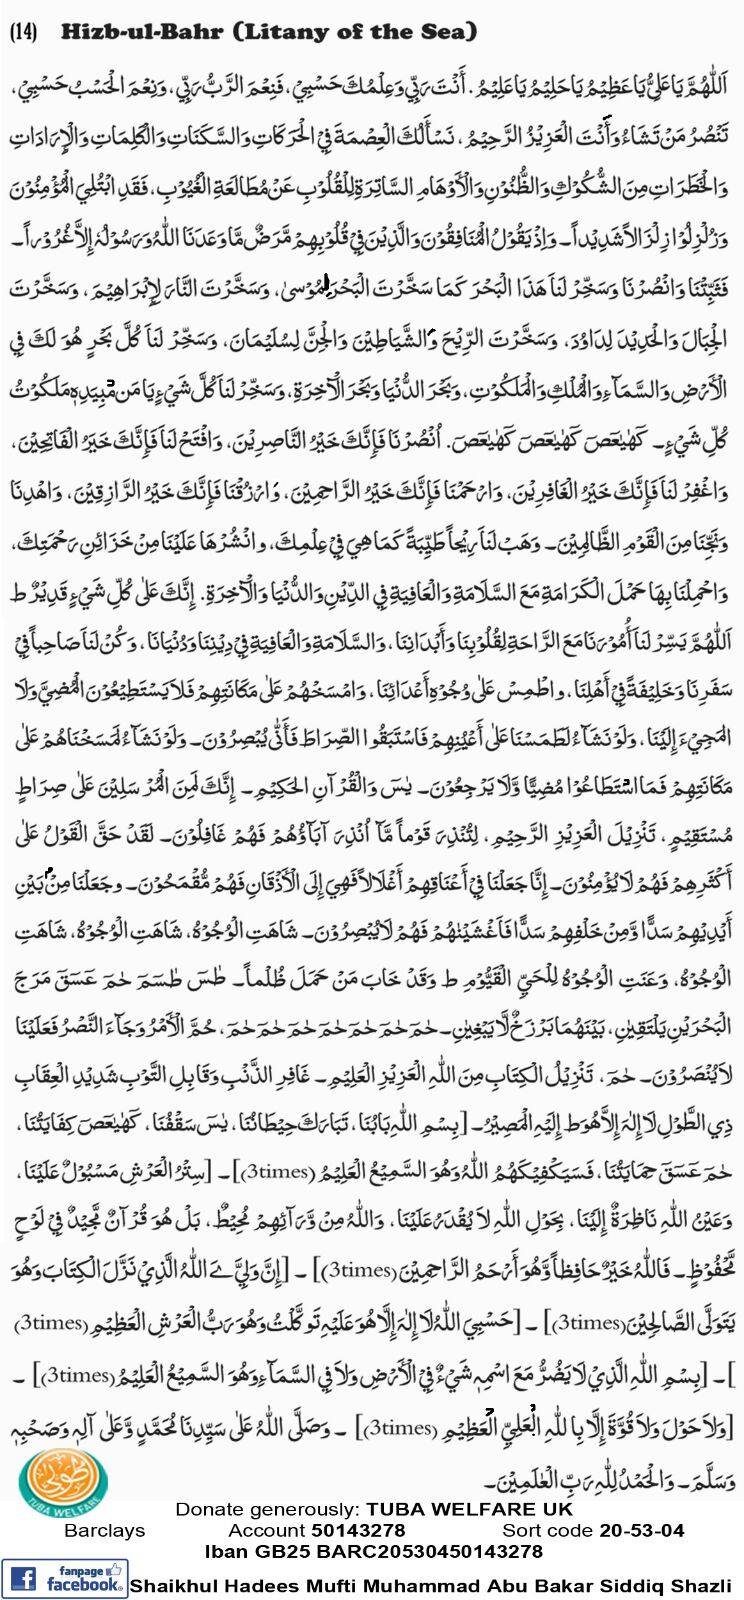 (14) Hizb-ul-Bahr (Litany of the Sea)
اَللّٰهُمَّ يَا عَلِيُّ يَا عَظِيْمُ يَا حَلِيْمُ يَا عَلِيْمُ. أَنْتَ رَبِّيْ وَعِلْمُكَ حَسْبِيْ، فَنِعْمَ الرَّبُّ رَبِّيْ، وَنِعْمَ الْحَسْبُ حَسْبِيْ،
تَنْصُرُ مَنْ تَشَاءُ وَأَنْتَ الْعَزِيْزُ الرَّحِيْمُ، نَسْأَلُكَ الْعِصْمَةَ فِي الْحَرَكَاتِ وَالسَّكَنَاتِ وَالْكَلِمَاتِ وَالْإِرَادَاتِ
وَالْخَطَرَاتِ مِنَ الشُّكُوْكِ وَالظُّنُوْنِ وَالْأَوْهَامِ السَّاتِرَةِ لِلْقُلُوْبِ عَنْ مُطَالَعَةِ الْغُيُوْبِ، فَقَدِ ابْتُلِيَ الْمُؤْمِنُوْنَ
وَزُلْزِلُوْا زِلْزَالًا شَدِيْداً۔ وَإِذْ يَقُوْلُ الْمُنَافِقُوْنَ وَالَّذِيْنَ فِيْ قُلُوْبِهِمْ مَّرَضٌ مَّا وَعَدَنَا اللهُ وَرَسُوْلُهٗ إِلَّا غُرُوْراً۔
فَثَبِّتْنَا وَانْصُرْنَا وَسَخِّرْ لَنَا هَذَا الْبَحْرَ كَمَا سَخَّرْتَ الْبَحْرَ لِمُوْسىٰ، وَسَخَّرْتَ النَّارَ لِإِبْرَاهِيْمَ، وَسَخَّرْتَ
الْجِبَالَ وَالْحَدِيْدَ لِدَاوُدَ، وَسَخَّرْتَ الرِّيْحَ وَالشَّيَاطِيْنَ وَالْجِنَّ لِسُلَيْمَانَ، وَسَخِّرْ لَنَا كُلَّ بَحْرٍ هُوَ لَكَ فِي
الْأَرْضِ وَالسَّمَآءِ وَالْمُلْكِ وَالْمَلَكُوْتِ، وَبَحْرَ الدُّنْيَا وَبَحْرَ الْآخِرَةِ، وَسَخِّرْ لَنَا كُلَّ شَيْءٍ يَا مَن بِيَدِهٖ مَلَكُوْتُ
كُلِّ شَيْءٍ۔ كٓهٰيٰعٓصٓ كٓهٰيٰعٓصٓ كٓهٰيٰعٓصٓ. اُنْصُرْنَا فَإِنَّكَ خَيْرُ النَّاصِرِيْنَ، وَافْتَحْ لَنَا فَإِنَّكَ خَيْرُ الْفَاتِحِيْنَ،
وَاغْفِرْ لَنَا فَإِنَّكَ خَيْرُ الْغَافِرِيْنَ، وَارْحَمْنَا فَإِنَّكَ خَيْرُ الرَّاحِمِيْنَ، وَارْزُقْنَا فَإِنَّكَ خَيْرُ الرَّازِقِيْنَ، وَاهْدِنَا
وَنَجِّنَا مِنَ الْقَوْمِ الظَّالِمِيْنَ۔ وَهَبْ لَنَا رِيْحاً طَيِّبَةً كَمَا هِيَ فِيْ عِلْمِكَ، وانْشُرْهَا عَلَيْنَا مِنْ خَزَائِنِ رَحْمَتِكَ،
وَاحْمِلْنَا بِهَا حَمْلَ الْكَرَامَةِ مَعَ السَّلَامَةِ وَالْعَافِيَةِ فِي الدِّيْنِ وَالدُّنْيَا وَالْآخِرَةِ. إِنَّكَ عَلىٰ كُلِّ شَيْءٍ قَدِيْرٌ ط
اَللّٰهُمَّ يَسِّرْ لَنَا أُمُوْرَنَا مَعَ الرَّاحَةِ لِقُلُوْبِنَا وَأَبْدَانِنَا، وَالسَّلَامَةِ وَالْعَافِيَةِ فِيْ دِيْنِنَا وَدُنْيَانَا، وَكُنْ لَنَا صَاحِباً فِيْ
سَفَرِنَا وَخَلِيْفَةً فِيْ أَهْلِنَا، واطْمِسْ عَلىٰ وُجُوْهِ أَعْدَائِنَا، وَامْسَخْهُمْ عَلىٰ مَكَانَتِهِمْ فَلَا يَسْتَطِيْعُوْنَ الْمُضِيَّ وَلَا
الْمَجِيْءَ إِلَيْنَا، وَلَوْ نَشَآءُ لَطَمَسْنَا عَلىٰ أَعْيُنِهِمْ فَاسْتَبَقُوا الصِّرَاطَ فَأَنّٰى يُبْصِرُوْنَ۔ وَلَوْ نَشَآءُ لَمَسَخْنَاهُمْ عَلىٰ
مَكَانَتِهِمْ فَمَا اسْتَطَاعُوْا مُضِيًّا وَّلَا يَرْجِعُوْنَ۔ يٰسٓ وَالْقُرْآنِ الْحَكِيْمِ۔ إِنَّكَ لَمِنَ الْمُرْسَلِيْنَ عَلىٰ صِرَاطٍ
مُسْتَقِيْمٍ، تَنْزِيْلَ الْعَزِيْزِ الرَّحِيْمِ، لِتُنْذِرَ قَوْماً مَّا أُنْذِرَ آبَاؤُهُمْ فَهُمْ غَافِلُوْنَ۔ لَقَدْ حَقَّ الْقَوْلُ عَلىٰ
أَكْثَرِهِمْ فَهُمْ لَا يُؤْمِنُوْنَ۔ إِنَّا جَعَلْنَا فِيْ أَعْنَاقِهِمْ أَغْلَالًا فَهِيَ إِلَى الْأَذْقَانِ فَهُمْ مُّقْمَحُوْنَ۔ وجَعَلْنَا مِنْ بَيْنِ
أَيْدِيْهِمْ سَدًّا وَّمِنْ خَلْفِهِمْ سَدًّا فَأَغْشَيْنٰهُمْ فَهُمْ لَا يُبْصِرُوْنَ۔ شَاهَتِ الْوُجُوْهُ، شَاهَتِ الْوُجُوْهُ، شَاهَتِ
الْوُجُوْهُ، وَعَنَتِ الْوُجُوْهُ لِلْحَيِّ الْقَيُّوْمِ ط وَقَدْ خَابَ مَنْ حَمَلَ ظُلْماً۔ طٰسٓ طٰسٓمٓ حٰمٓ عٓسٓقٓ مَرَجَ
الْبَحْرَيْنِ يَلْتَقِيٰنِ، بَيْنَهُمَا بَرْزَخٌ لَّا يَبْغِيٰنِ۔ حٰمٓ حٰمٓ حٰمٓ حٰمٓ حٰمٓ حٰمٓ حٰمٓ، حُمَّ الْأَمْرُ وَجَآءَ النَّصْرُ فَعَلَيْنَا
لَا يُنْصَرُوْنَ۔ حٰمٓ، تَنْزِيْلُ الْكِتَابِ مِنَ اللهِ الْعَزِيْزِ الْعَلِيْمِ۔ غَافِرِ الذَّنْبِ وَقَابِلِ التَّوْبِ شَدِيْدِ الْعِقَابِ
ذِي الطَّوْلِ لَا إِلٰهَ إِلَّا هُوَ ط إِلَيْهِ الْمَصِيْرُ۔ [بِسْمِ اللهِ بَابُنَا، تَبَارَكَ حِيْطَانُنَا، يٰسٓ سَقْفُنَا، كٓهٰيٰعٓصٓ كِفَايَتُنَا،
حٰمٓ عٓسٓقٓ حِمَايَتُنَا، فَسَيَكْفِيْكَهُمُ اللهُ وَهُوَ السَّمِيْعُ الْعَلِيْمُ (3times)]۔ [سِتْرُ الْعَرْشِ مَسْبُوْلٌ عَلَيْنَا،
وَعَيْنُ اللهِ نَاظِرَةٌ إِلَيْنَا، بِحَوْلِ اللهِ لَا يُقْدَرُ عَلَيْنَا، وَاللهُ مِنْ وَّرَآئِهِمْ مُحِيْطٌ، بَلْ هُوَ قُرْآنٌ مَّجِيْدٌ فِيْ لَوْحٍ
مَّحْفُوْظٍ۔ فَاللهُ خَيْرٌ حَافِظاً وَّهُوَ أَرْحَمُ الرَّاحِمِيْنَ (3times)]۔ [إِنَّ وَلِيِّ ےَ اللهُ الَّذِيْ نَزَّلَ الْكِتَابَ وَهُوَ
يَتَوَلَّى الصَّالِحِيْنَ (3times)]۔ [حَسْبِيَ اللهُ لَا إِلٰهَ إِلَّا هُوَ عَلَيْهِ تَوَكَّلْتُ وَهُوَ رَبُّ الْعَرْشِ الْعَظِيْمِ (3times)
]۔ [بِسْمِ اللهِ الَّذِيْ لَا يَضُرُّ مَعَ اسْمِهٖ شَيْءٌ فِي الْأَرْضِ وَلَا فِي السَّمَآءِ وَهُوَ السَّمِيْعُ الْعَلِيْمُ (3times)]۔
[وَلَا حَوْلَ وَلَا قُوَّةَ إِلَّا بِاللهِ الْعَلِيِّ الْعَظِيْمِ (3times)]۔ وَصَلَّى اللهُ عَلىٰ سَيِّدِنَا مُحَمَّدٍ وَّعَلىٰ آلِهٖ وَصَحْبِهٖ
وَسَلَّمَ۔ وَالْحَمْدُ لِلّٰهِ رَبِّ الْعٰلَمِيْنَ۔
طوبیٰ
TUBA WELFARE
Donate generously: TUBA WELFARE UK
Barclays Account 50143278 Sort code 20-53-04
Iban GB25 BARC20530450143278
f fanpage facebook. Shaikhul Hadees Mufti Muhammad Abu Bakar Siddiq Shazli